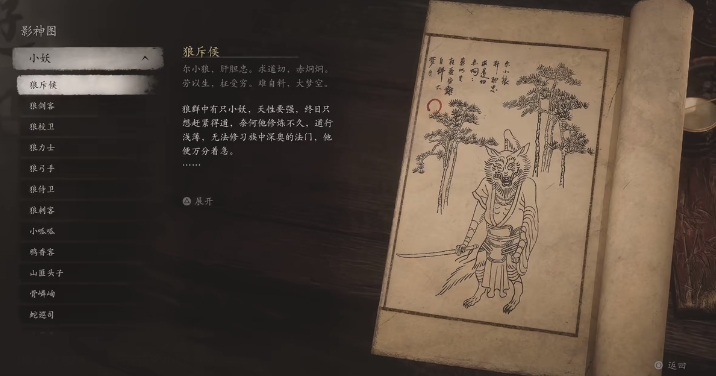 影神图
小妖
狼斥候
狼剑客
狼校卫
狼力士
狼弓手
狼侍卫
狼刺客
小呱呱
鸦香客
山匪头子
骨嶙峋
蛇巡司
狼斥候
尔小狼，肝胆忠。求道切，赤炯炯。
劳以生，枉受穷。难自料，大梦空。
狼群中有只小妖，天性要强，终日只
想赶紧得道，奈何他修炼不久，道行
浅薄，无法修习族中深奥的法门，他
便万分着急。
……
展开
返回